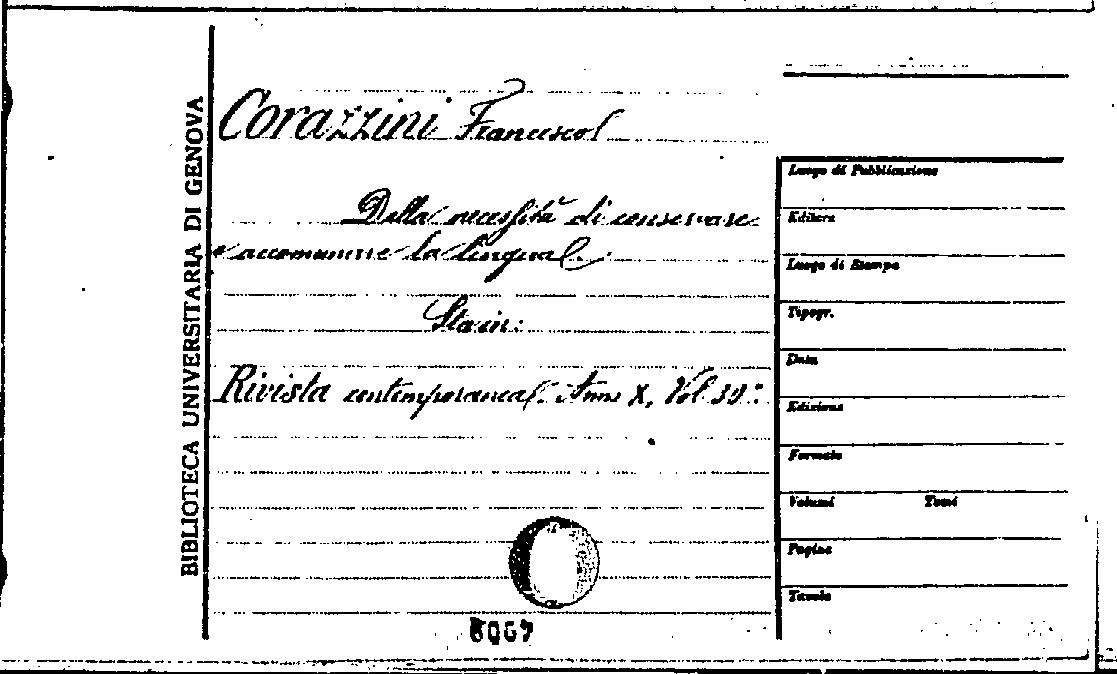 BIBLIOTECA UNIVERSITARIA DI GENOVA
Corazzini Francesco
Della necessità di conservare
e accomunare la lingua.
Sta in:
Rivista contemporanea. Anno X, Vol. 30°:
Luogo di Pubblicazione
Editore
Luogo di Stampa
Tipogr.
Data
Edizione
Formato
Volumi Tomi
Pagine
Tavole